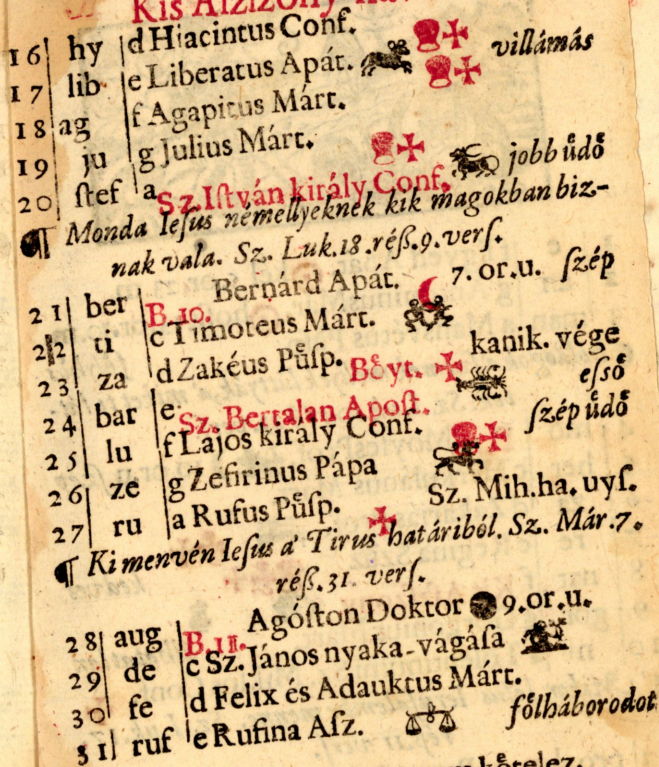 Kis
16 hy d Hiacintus Conf.
17 lib e Liberatus Apát. villámás
18 ag f Agapitus Márt.
19 ju g Julius Márt.
20 ſtef a Sz. Iſtván király Conf. jobb üdő
¶ Monda Ieſus némellyeknek kik magokban biz-
nak vala. Sz. Luk. 18. réſz. 9. verſ.
21 ber B. 10. Bernárd Apát. 7. or. u. ſzép
22 ti c Timoteus Márt.
23 za d Zakéus Püſp. kanik. vége
24 bar e Sz. Bertalan Apoſt. Böyt. eſső
25 lu f Lajos király Conf. ſzép üdő
26 ze g Zefirinus Pápa
27 ru a Rufus Püſp. Sz. Mih. ha. uyſ.
¶ Ki menvén Ieſus a' Tirus határiból. Sz. Már. 7.
réſz. 31. verſ.
28 aug B. 11. Agóſton Doktor 9. or. u.
29 de c Sz. János nyaka-vágáſa
30 fe d Felix és Adauktus Márt.
31 ruf e Rufina Aſz. fölháborodot